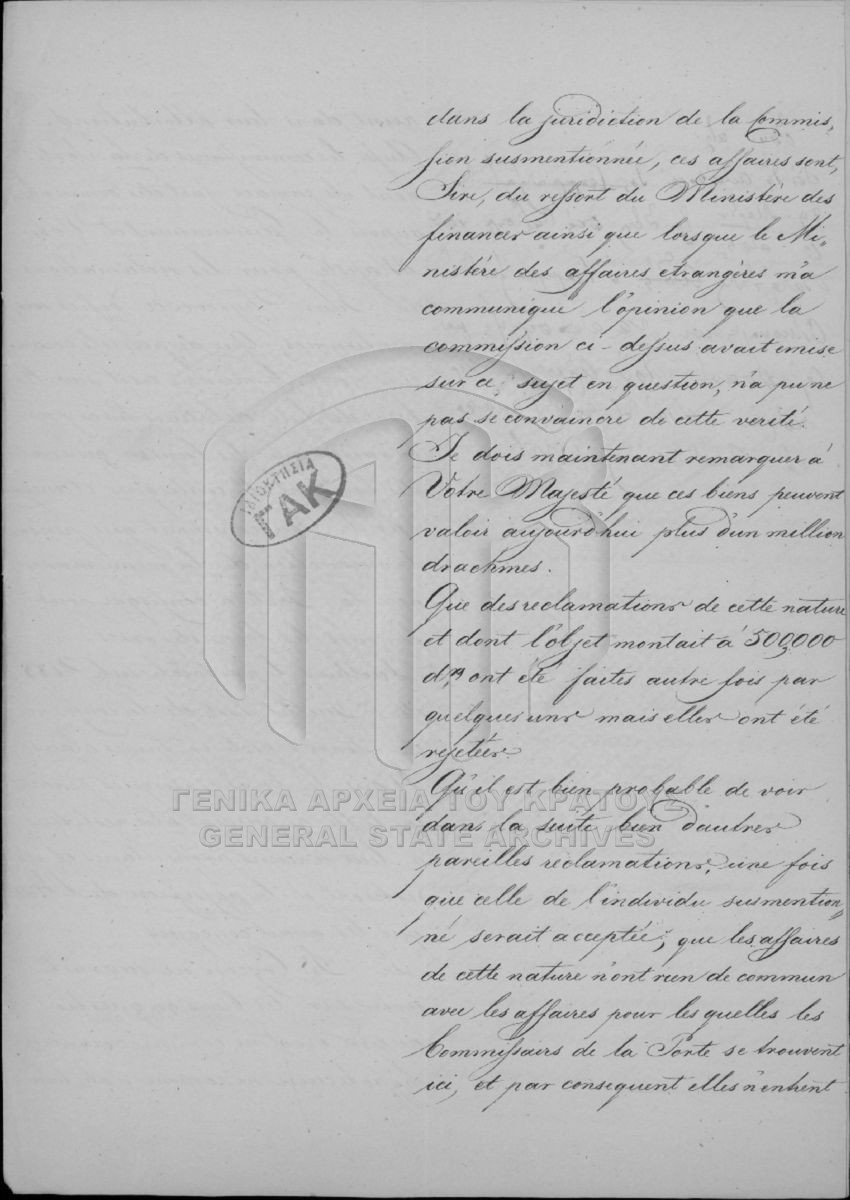 dans la juridiction de la Commis„
sion susmentionnée, ces affaires sont,
Sire, du ressort du Ministère des
finances ainsi que lorsque le Mi„
nistére des affaires etrangères m'a
communiqué l'opinion que la
commission ci-dessus avait emise
sur ce sujet en question, n'a pu ne
pas se convaincre de cette verité.
Je dois maintenant remarquer à
Votre Majesté que ces biens peuvent
valoir aujourd'hui plus d'un million
drachmes.
Que des reclamations de cette nature
et dont l'objet montait à 500,000
drs ont été faites autre fois par
quelques uns mais elles ont été
rejetées.
Qu'il est bien probable de voir
dans la suite bien d'autres
pareilles reclamations, une fois
que celle de l'individu susmention„
né serait acceptée; que les affaires
de cette nature n'ont rien de commun
avec les affaires pour les quelles les
Commissairs de la Porte se trouvent
ici, et par consequent elles n'entrent
ΙΔΙΟΚΤΗΣΙΑ
ΓΑΚ
ΓΕΝΙΚΑ ΑΡΧΕΙΑ ΤΟΥ ΚΡΑΤΟΥΣ
GENERAL STATE ARCHIVES